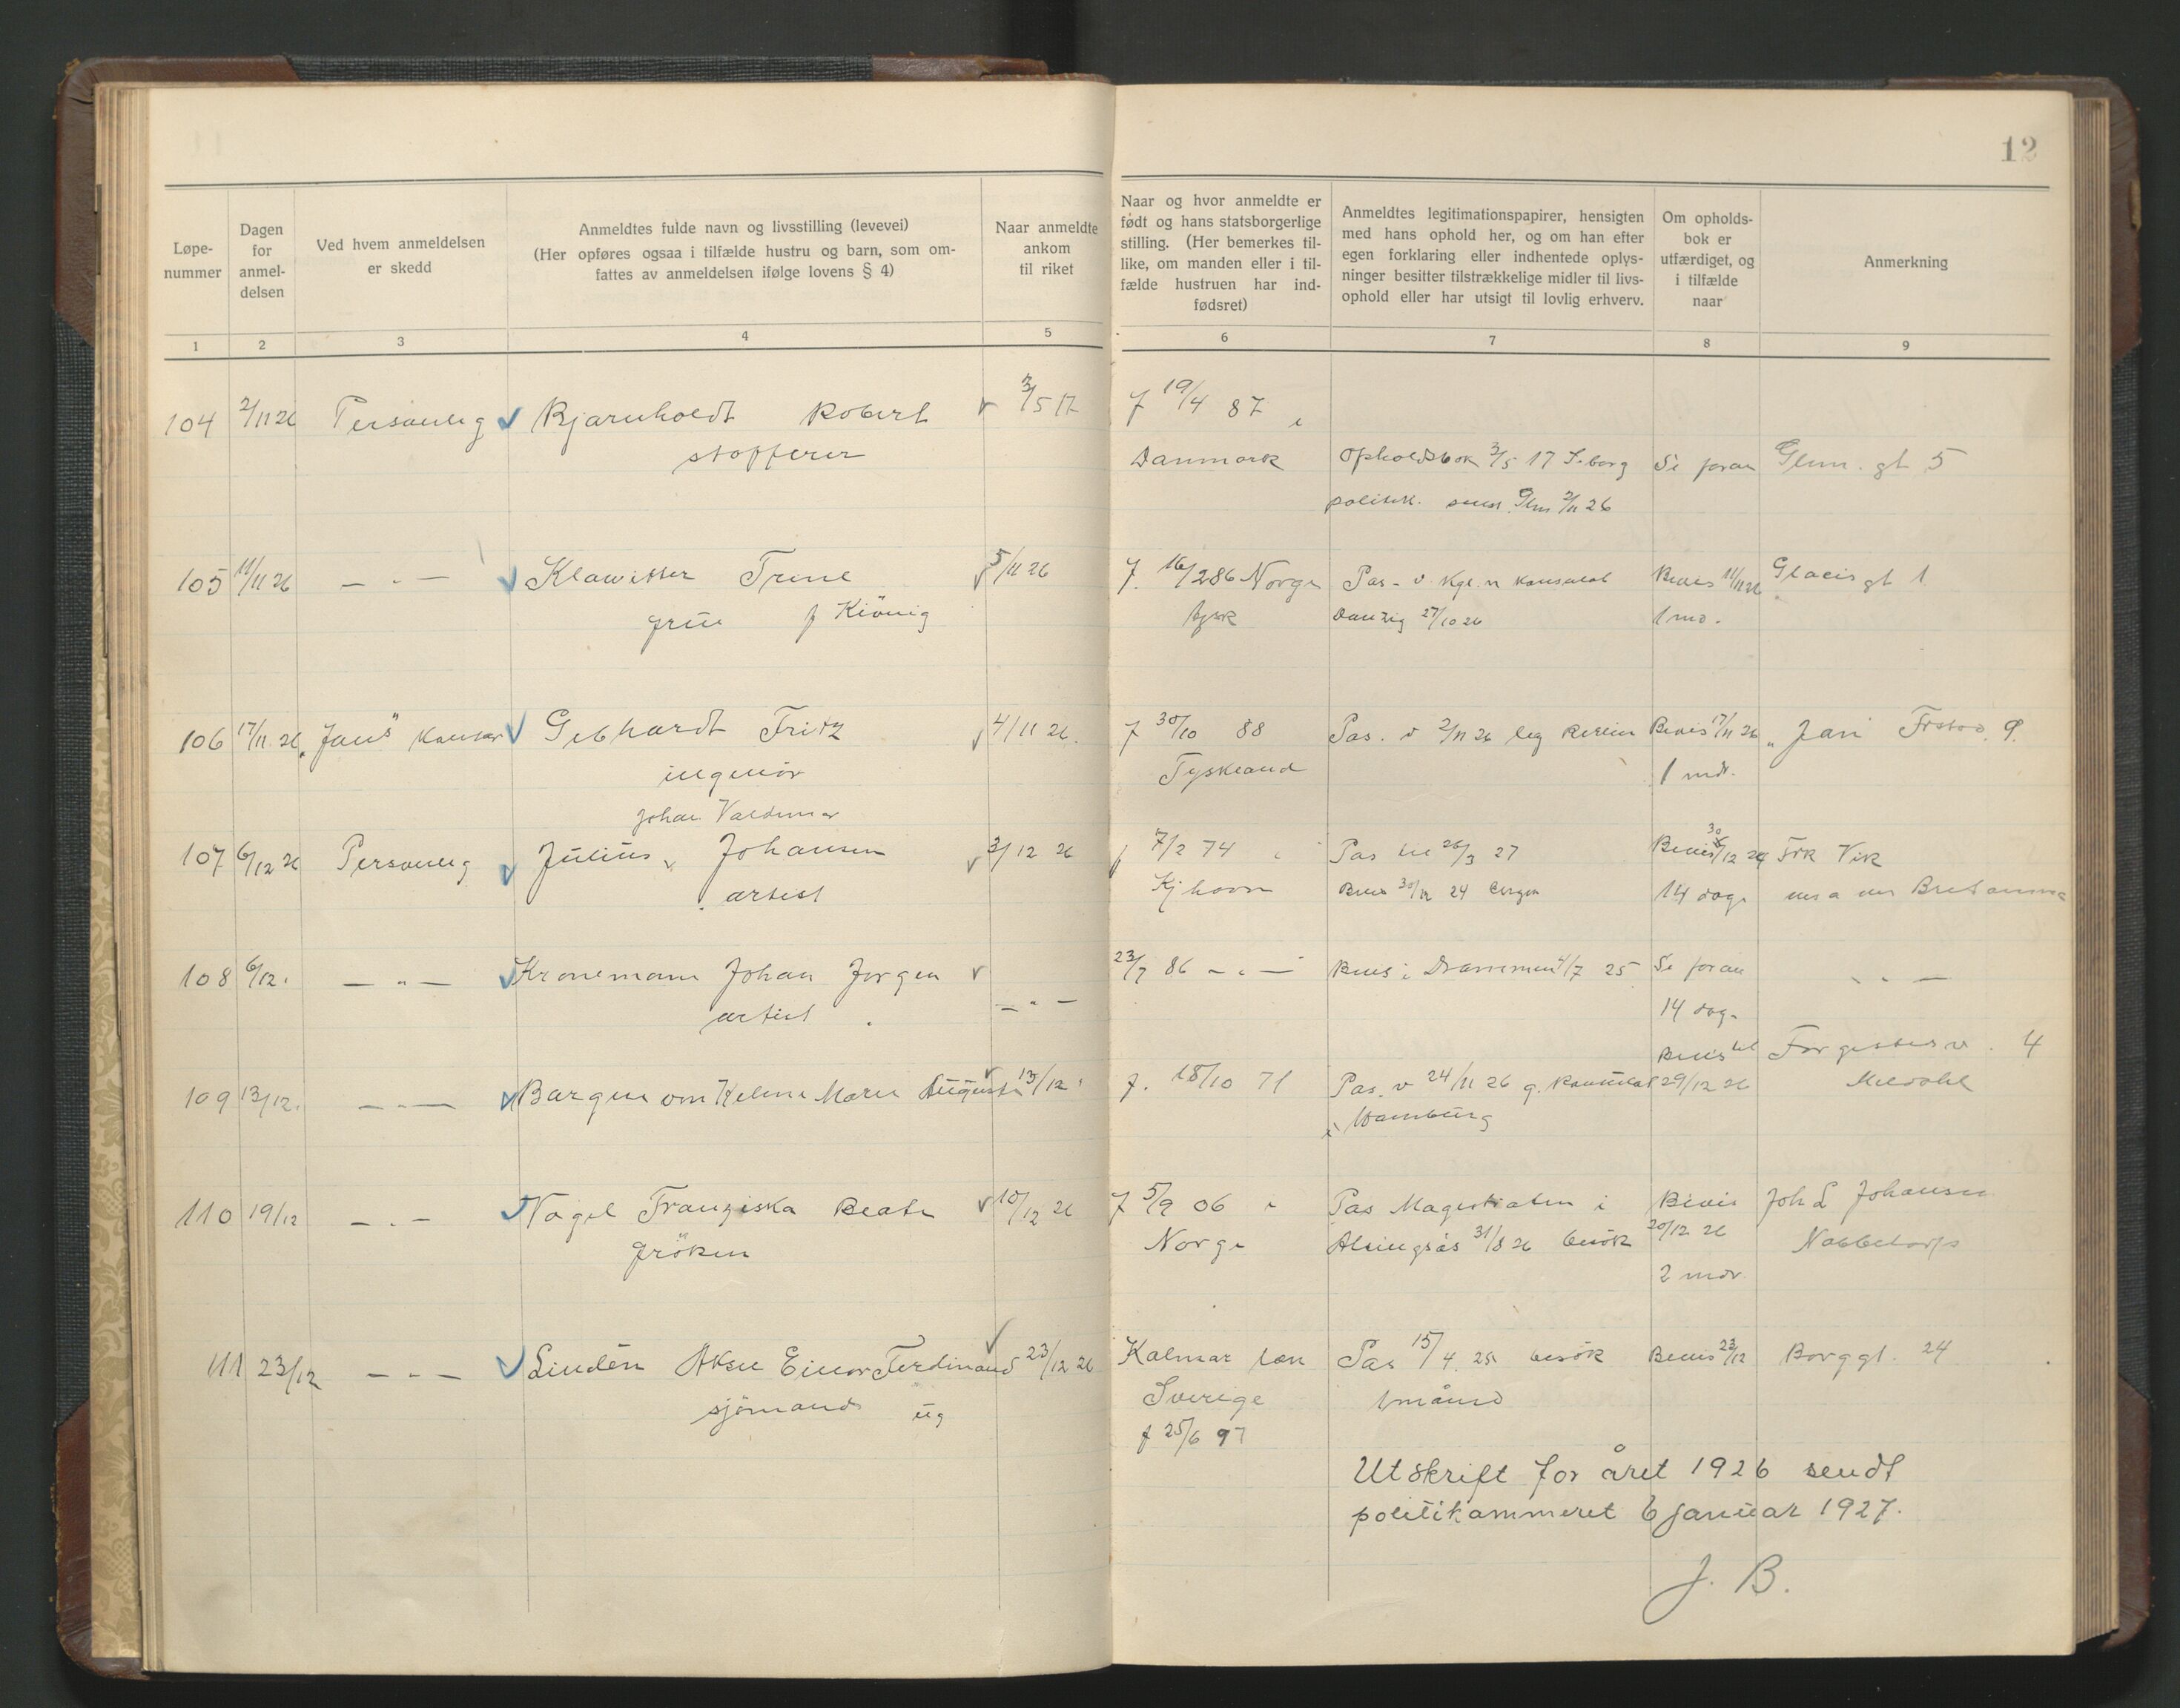 12
Løpe-
nummer
Dagen
for
anmel-
delsen
Ved hvem anmeldelsen
er skedd
Anmeldtes fulde navn og livsstilling (levevei)
(Her opføres ogsaa i tilfælde hustru og barn, som om-
fattes av anmeldelsen ifølge lovens § 4)
Naar anmeldte
ankom
til riket
Naar og hvor anmeldte er
født og hans statsborgerlige
stilling. (Her bemerkes til-
like, om manden eller i til-
fælde hustruen har ind-
fødsret)
Anmeldtes legitimationspapirer, hensigten
med hans ophold her, og om han efter
egen forklaring eller indhentede oplys-
ninger besitter tilstrækkelige midler til livs-
ophold eller har utsigt til lovlig erhverv.
Om opholds-
bok er
utfærdiget, og
i tilfælde
naar
Anmerkning
1 2 3 4 5 6 7 8 9
104 2/11 26 Personlig Bjarnholdt Robert 3/5 17 f 19/4 87
stofferer Danmark Opholdsbok 3/5 17 S.borg Se foran Glem. gt 5
politik. 2/11 26
105 11/11 26 — " — Klawitter Trine 5/11 26 f. 16/2 86 Norge Pas v. Kgl. n konsulat Bevis 11/11 26 Glacis gt 1
frue f Kiönig tysk Danzig 27/10 26 1 md.
106 17/11 26 "Jans" Gebhardt Fritz 4/11 26. f 30/10 88 Pas. v 2/11 26 leg Berlin Bevis 17/11 26 9.
ingeniör Tyskland 1 md.
Johan Valdemar
107 6/12 26 Personlig Julius Johansen 3/12 26 f 7/2 74 Pas til 26/3 27 Bevis 30/12 24 Frk Vik
artist Kj havn Bevis 30/12 24 Bergen 14 dag.
108 6/12. — " — Kronemann Johan Jorgen — " — 23/7 86 — " — Bevis i Drammen 4/7 25 Se foran — " —
artist 14 dag.
109 13/12. — " — Bargen Marie Auguste 13/12 f. 18/10 71 Pas. v 24/11 26 g. konsulat Bevis til 29/12 26 4
i Hamburg
110 19/12 — " — Nagel Franziska Beate 10/12 26 f 5/9 06 Pas Magistraten i Bevis Joh L Johansen
fröken Norge Alingsås 31/8 26 besök 20/12 26 Nabbetorp
2 mdr.
111 23/12 — " — Lindén Aksel Einar Ferdinand 23/12 26 Kalmar len Pas 15/4 25 besök Bevis 23/12 Borggt. 24
sjömand ug Sverige 1 månd
f 25/6 97
Utskrift for året 1926 sendt
politikammeret 6 januar 1927.
J. B.